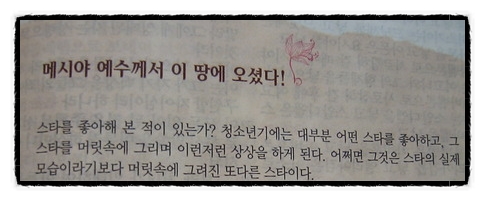 메시야 예수께서 이 땅에 오셨다!
스타를 좋아해 본 적이 있는가? 청소년기에는 대부분 어떤 스타를 좋아하고, 그
스타를 머릿속에 그리며 이런저런 상상을 하게 된다. 어쩌면 그것은 스타의 실제
모습이라기보다 머릿속에 그려진 또다른 스타이다.